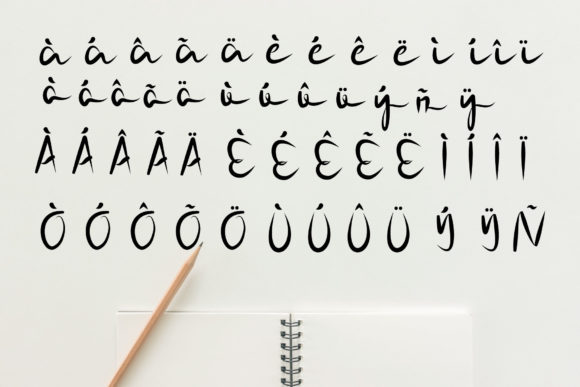 à á â ã ä è é ê ë ì í î ï
ò ó ô õ ö ù ú û ü ý ñ ÿ
À Á Â Ã Ä È É Ê Ẽ Ë Ì Í Î Ï
Ò Ó Ô Õ Ö Ù Ú Û Ü Ý Ÿ Ñ